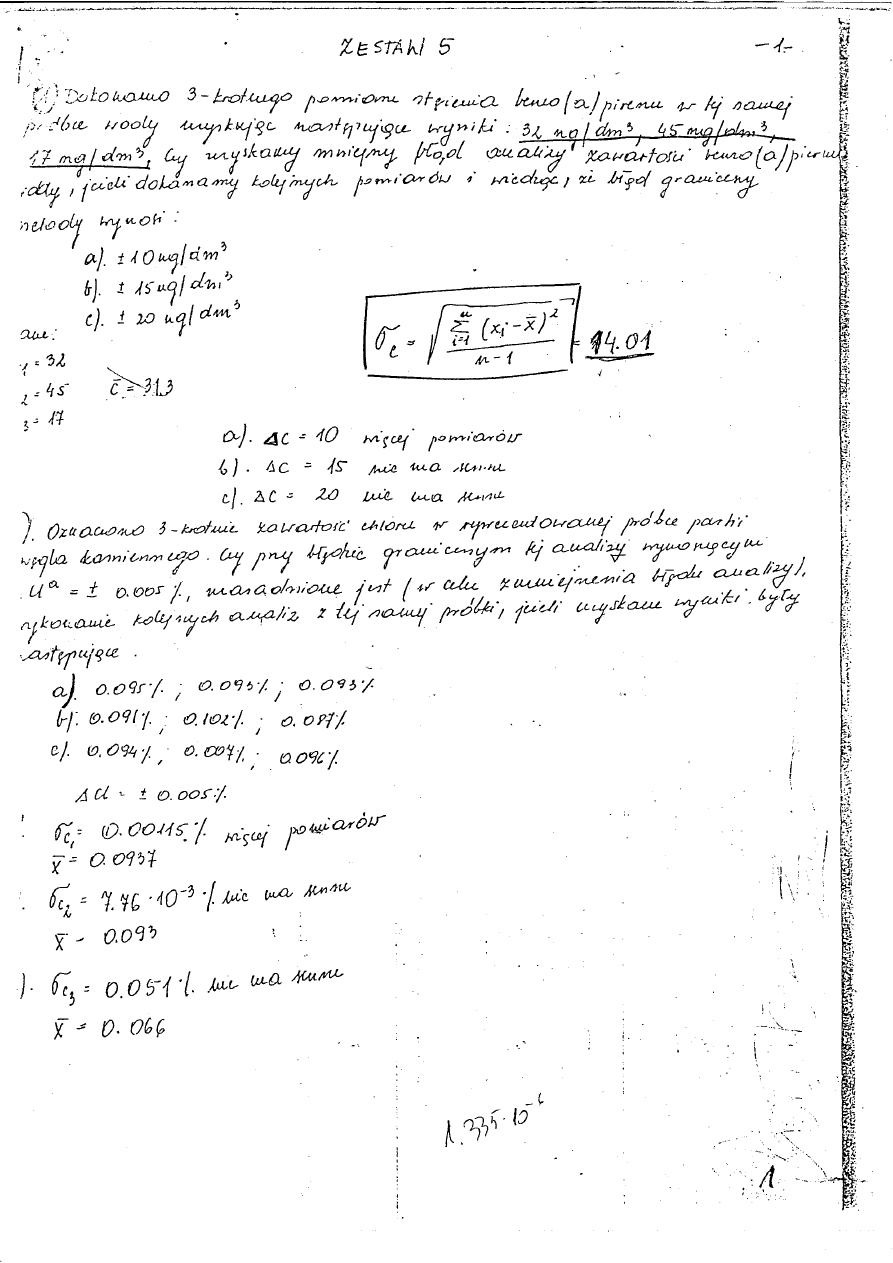 ZESTAW 5 -1-
Dokonano 3-krotnego pomiaru stężenia benzo(a)pirenu w tej samej
próbce wody uzyskując następujące wyniki: 32 ng/dm³, 45 mg/dm³,
17 mg/dm³, Czy uzyskamy mniejszy błąd analizy zawartości benzo(a)pirenu
idły, jeżeli dokonamy kolejnych pomiarów i wiedząc, że błąd graniczny
metody wynosi:
a). ± 10 ug/dm³
b). ± 15 ug/dm³
c). ± 20 ug/dm³
ane:
1 = 32
2 = 45 c̄ = 31,3
3 = 17
σc = √(∑ i=1 n (xi - x̄)² / n-1) = 14.01
a). Δc = 10 więcej pomiarów
b). Δc = 15 nie ma sensu
c). Δc = 20 nie ma sensu
). Oznaczono 3-krotnie zawartość chloru w reprezentowanej próbce partii
węgla kamiennego. Czy przy błędzie granicznym tej analizy wynoszącym
Uᵃ = ± 0.005 %, uzasadnione jest (w celu zmniejszenia błędu analizy),
wykonanie kolejnych analiz z tej samej próbki, jeżeli uzyskane wyniki były
następujące.
a). 0.095%; 0.093%; 0.093%
b). 0.091%; 0.102%; 0.087%
c). 0.094%; 0.007%; 0.096%
ΔCl = ± 0.005%
σc₁ = 0.00115% więcej pomiarów
x̄ = 0.0937
σc₂ = 7.76·10⁻³ % nie ma sensu
x̄ - 0.093
). σc₃ = 0.051% nie ma sensu
x̄ = 0.066
1.335·10⁻⁶
1